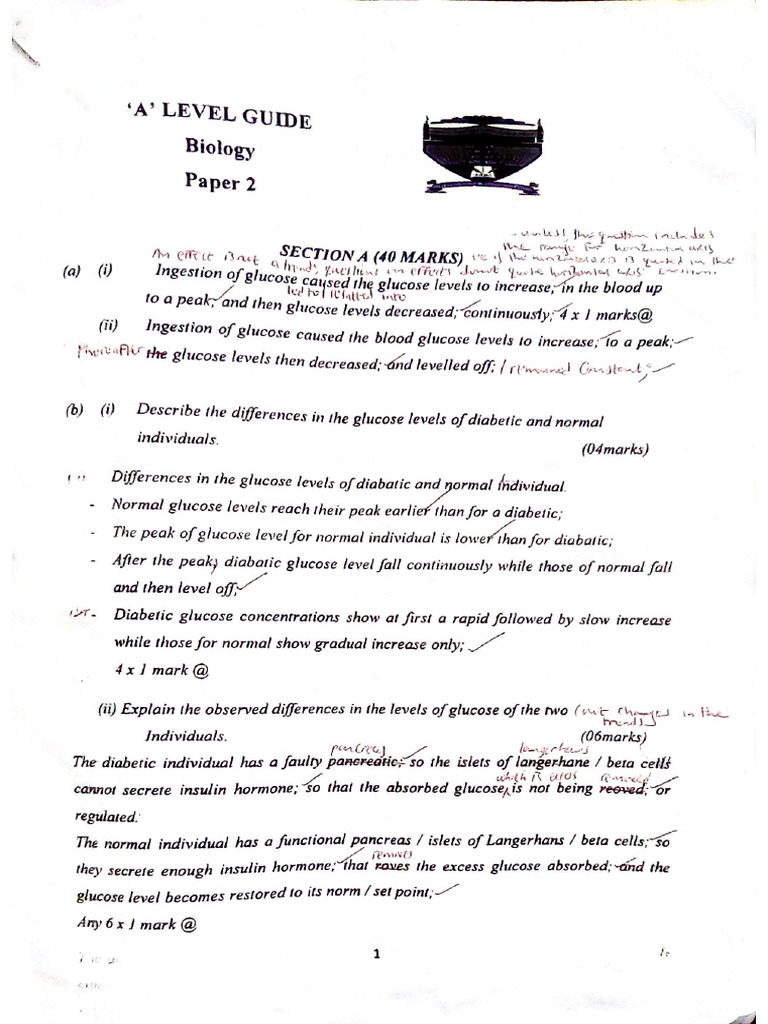 'A' LEVEL GUIDE
Biology
Paper 2
unless the question includes
the range for horizontal axis
SECTION A (40 MARKS) i.e if the horizontal axis is quoted in the
An effect is not a trend, questions on effects do not quote horizontal axis
(a) (i) Ingestion of glucose caused the glucose levels to increase; in the blood up
led to / resulted into
to a peak; and then glucose levels decreased; continuously; 4 x 1 marks@
(ii) Ingestion of glucose caused the blood glucose levels to increase; to a peak;
Thereafter the glucose levels then decreased; and levelled off; / remained constant;
(b) (i) Describe the differences in the glucose levels of diabetic and normal
individuals.
(04marks)
Differences in the glucose levels of diabatic and normal individual.
- Normal glucose levels reach their peak earlier than for a diabetic;
- The peak of glucose level for normal individual is lower than for diabatic;
- After the peak, diabatic glucose level fall continuously while those of normal fall
and then level off;
- Diabetic glucose concentrations show at first a rapid followed by slow increase
while those for normal show gradual increase only;
4 x 1 mark @
(ii) Explain the observed differences in the levels of glucose of the two (not changes in the
trends)
Individuals. (06marks)
pancreas langerhans
The diabetic individual has a faulty pancreatic; so the islets of langerhane / beta cells
which is excess removed
cannot secrete insulin hormone; so that the absorbed glucose, is not being reoved; or
regulated.
The normal individual has a functional pancreas / islets of Langerhans / beta cells; so
removes
they secrete enough insulin hormone; that roves the excess glucose absorbed; and the
glucose level becomes restored to its norm / set point;
Any 6 x 1 mark @
1